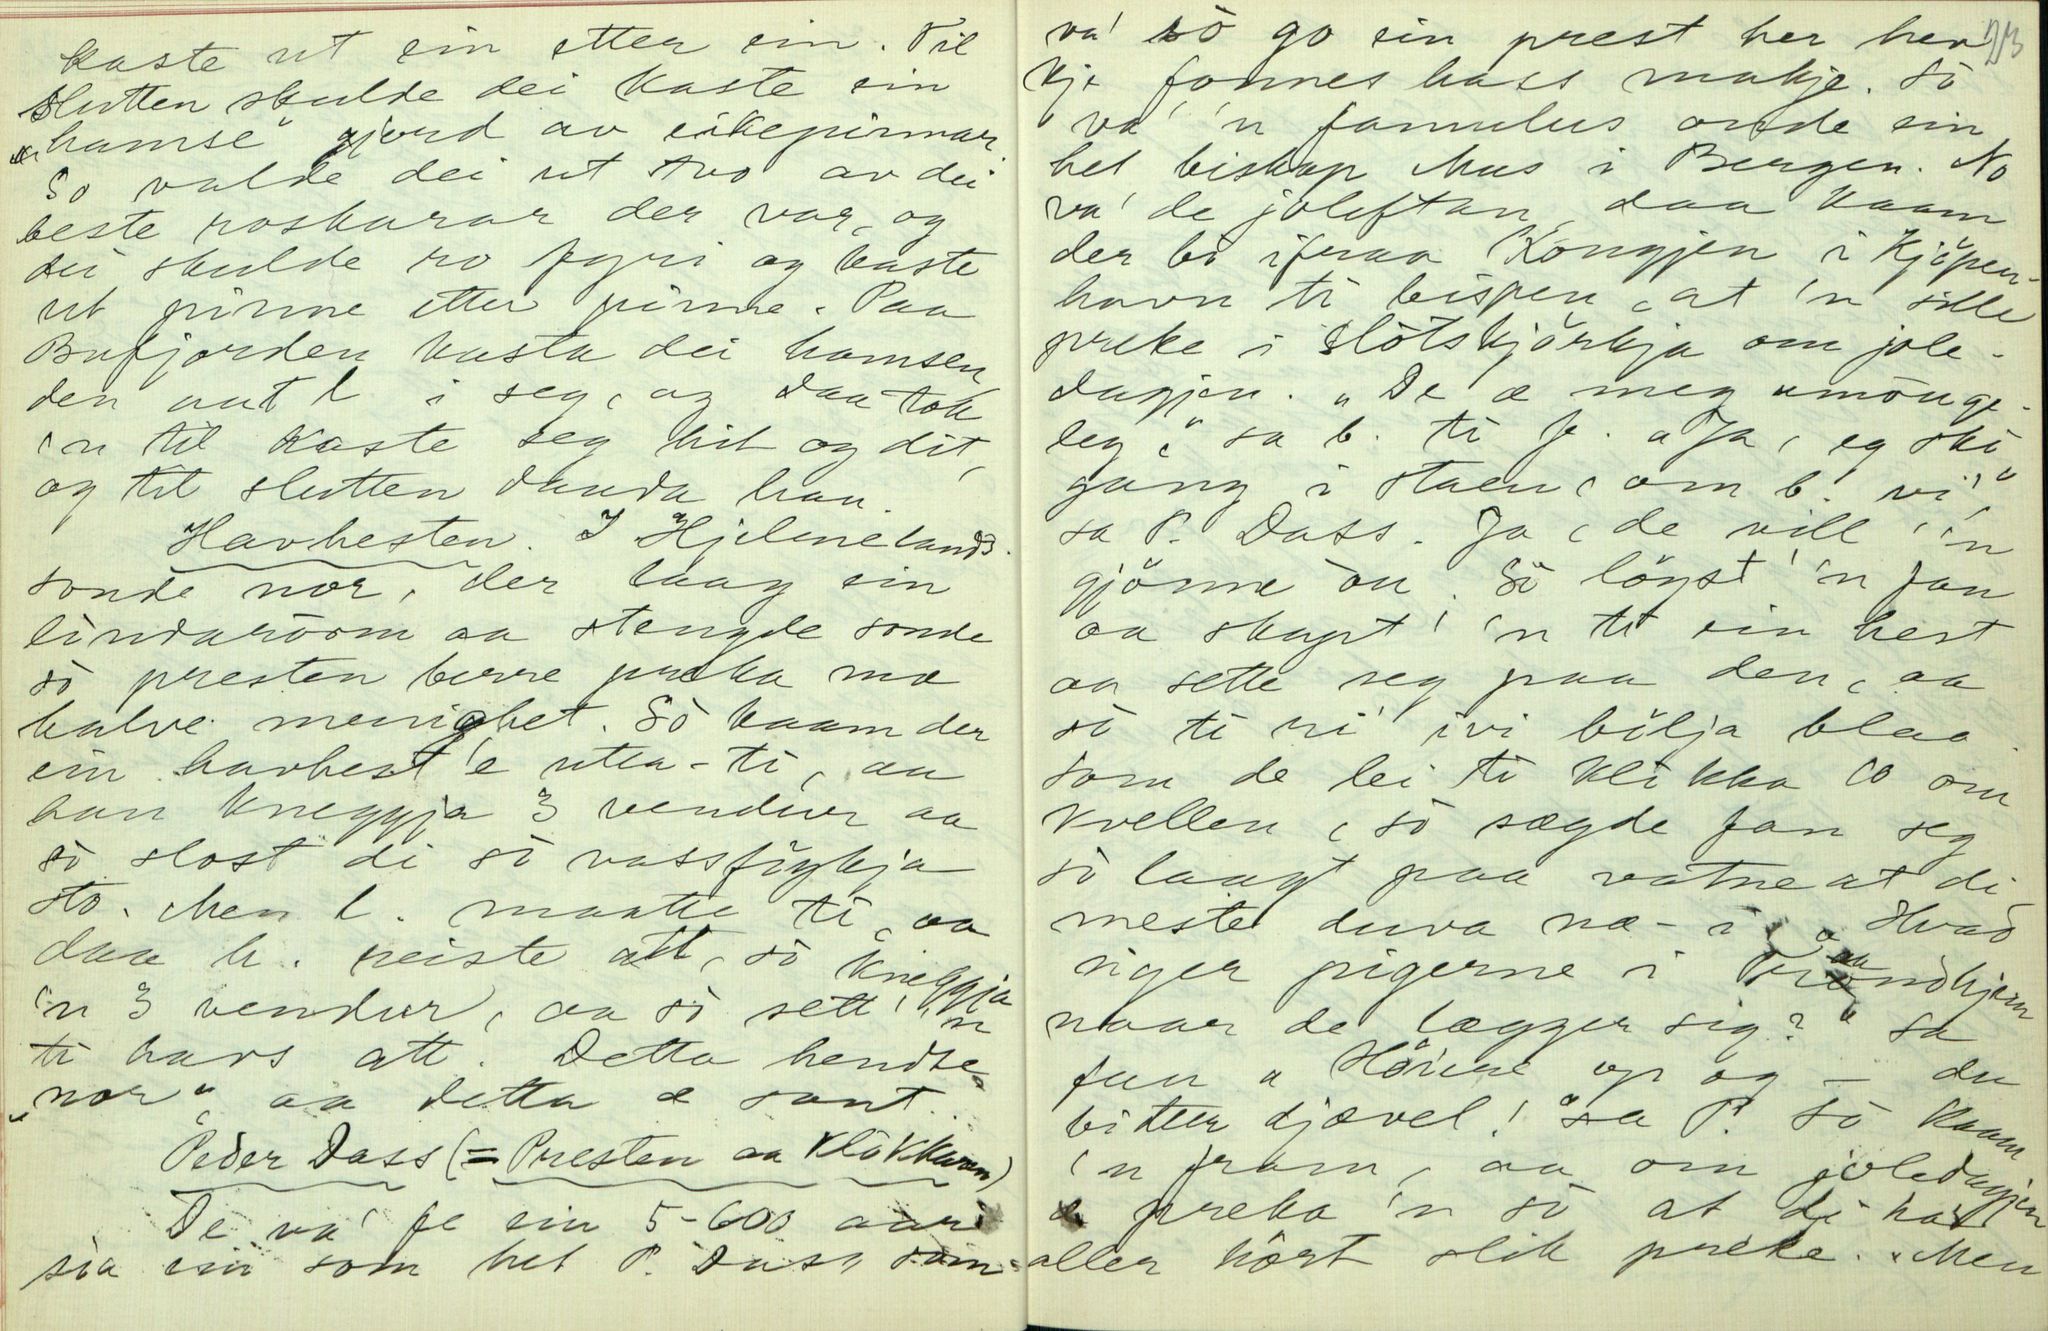 kaste ut ein etter ein. Til
slutten skulde dei kaste ein
„hamse" gjord av eikepinnar.
So valde dei ut two av dei
beste roskarar der var, og
dei skulde ro fyri og kaste
ut pinne etter pinne. Paa
Bufjorden kasta dei hamsen,
den aat l i seg, og daa tok
'n til kaste seg hit og dit,
og til slutten dauda han.
Havhesten. I Hjelmelands-
sonde nor, der laag ein
lindaroorm aa stengde sonde
sò presten berre preka mæ
halve menighet. Sò kaam der
ein havhest 'e utta-ti, aa
han kneggja 3 vendur aa
sò slost di sò vassfykja
sto. Men l. maatte ti, aa
daa h. reiste att, sò kneggja
'n 3 vendur, aa sò sett' 'n
ti havs att. Detta hendte
„nor" aa detta æ sant.
Peder Dass (= Presten aa klåkkaren)
De va' fe ein 5-600 aari
sia ein som het P. Dass som
va' sò go ein prest her her 23
kje fonnes hass makje. Sò
va' 'n famulus onde ein
het biskop Mus i Bergen. No
va' de joleftan, daa kaam
der bò ifraa Kongjen i Kjöpen-
havn ti bispen, at 'n sille
preke i Slòtskjörkja om jole-
dagjen. „De æ meg umòuge-
leg," sa b. ti f. „Ja, eg ska
gang i staen, om b. vi',"
sa P. Dass. Ja, de vill' 'n
gjönne ou. Sò löyst' 'n fan
aa skapt' 'n ti ein hest
aa sette seg paa den, aa
sò ti ri' ivi bölja blaa.
Som de lei ti klikka 10 om
kvellen, sò sægde fan seg
sò laagt paa vatne at di
meste duva næ-i. „Hvad
siger pigerne i Traandhjem
naar de lægger sig?" sa
fan „Höine op og - du
bitter djævel!" sa P. Sò kaam
'n fram, aa om joledagjen
preka 'n sò at di ha
aller hört slik preke. „Men